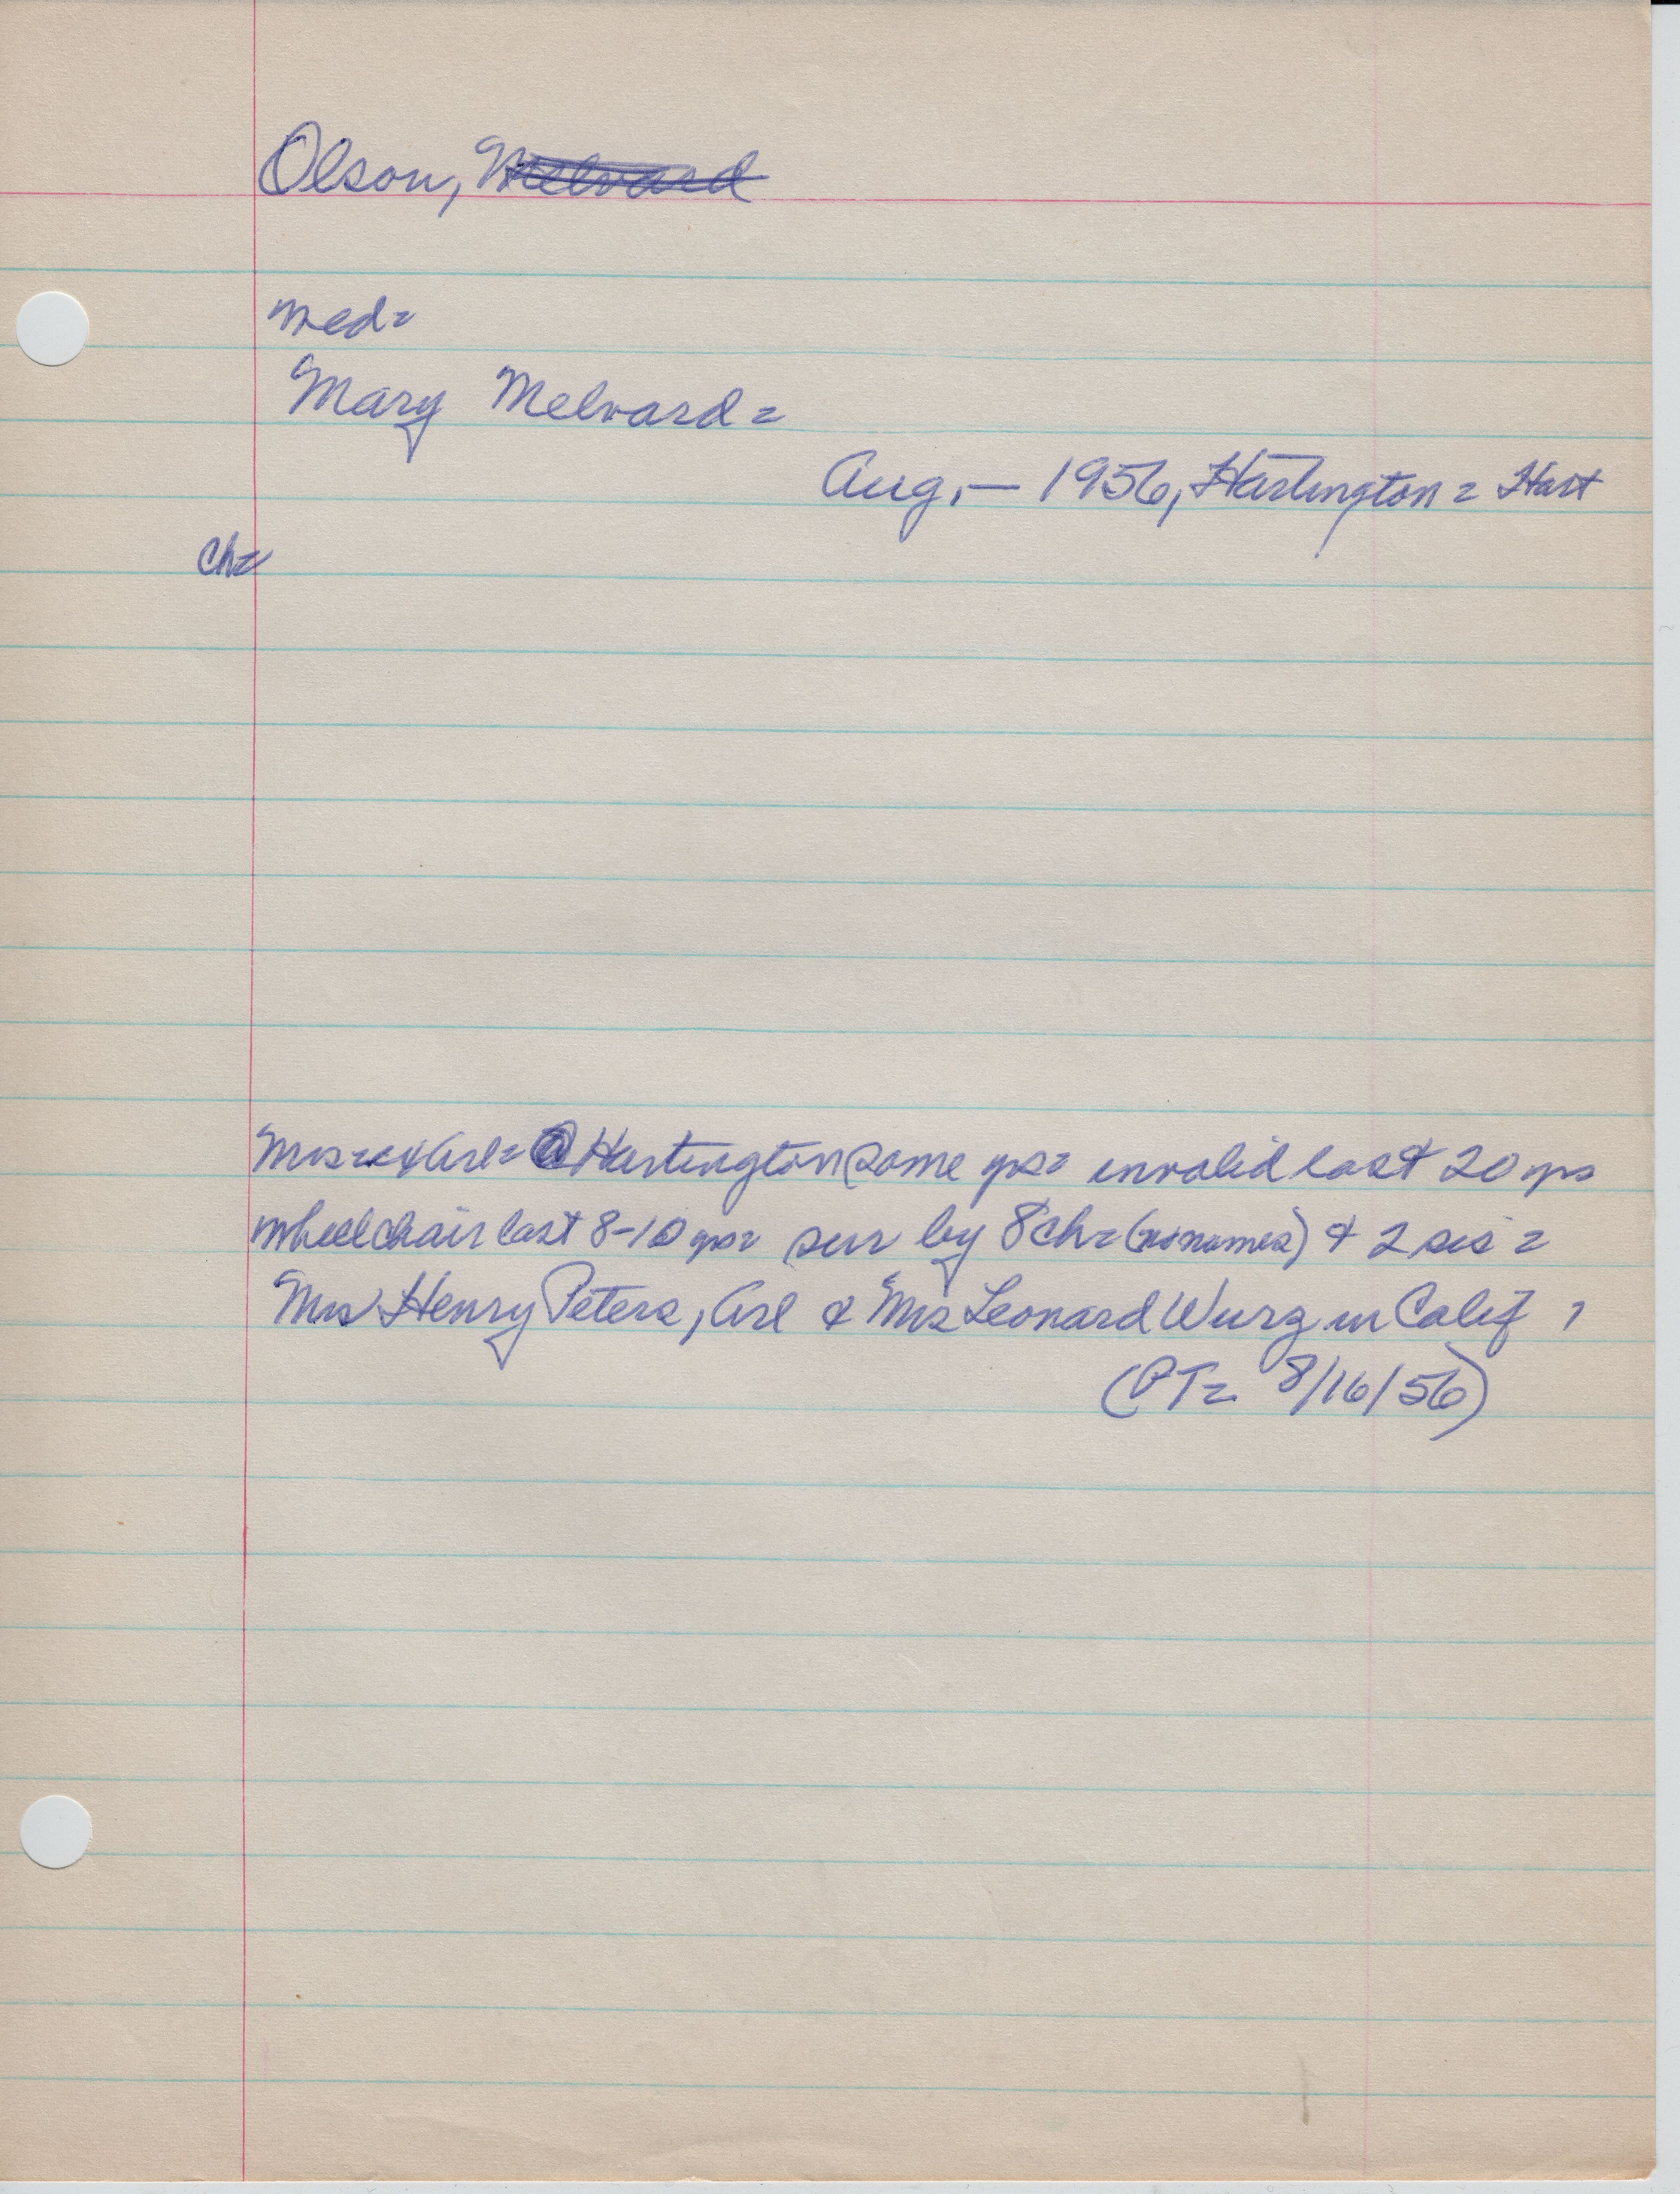 Olson, Melvard
med=
Mary Melvard=
Aug. — 1956, Hartington = Hart
Ch=
Mrs = ex Arl= @ Hartington some yrs= invalid last 20 yrs
wheelchair last 8-10 yrs= sur by 8 ch= (no names) & 2 sis =
Mrs Henry Peters, Arl & Mrs Leonard Wurz in Calif,
(PT= 8/16/56)